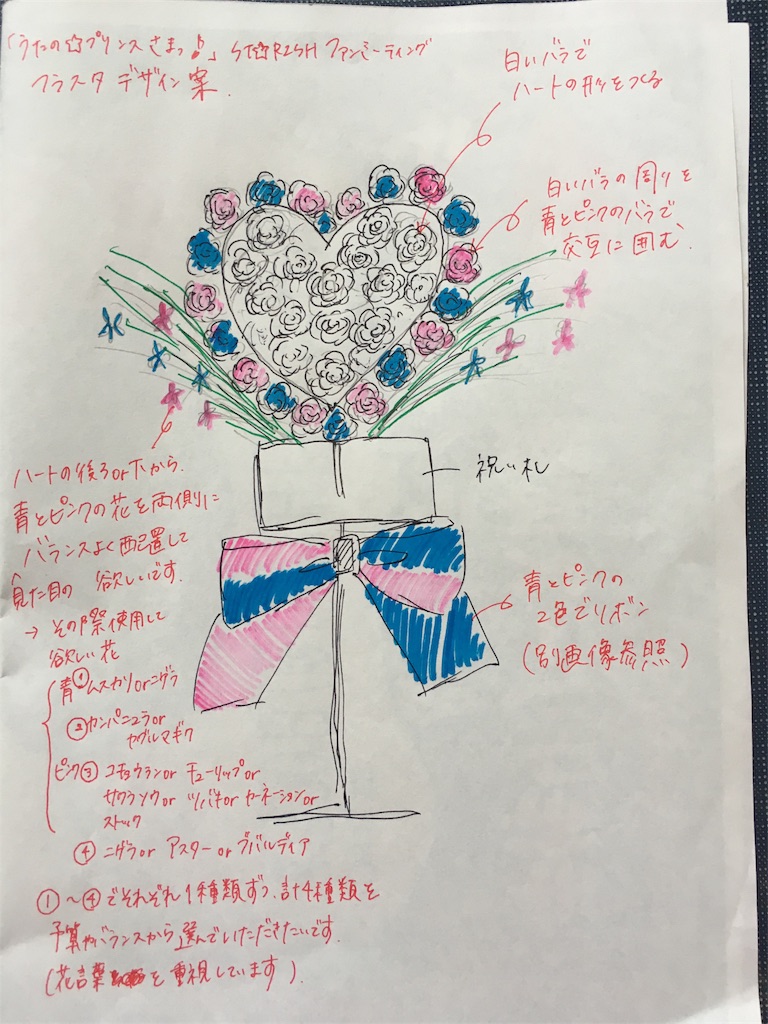 「うたの☆プリンスさまっ♪」ST☆RISH ファンミーティング
フラスタ デザイン案.
白いバラで
ハートの形をつくる
白いバラの周りを
青とピンクのバラで
交互に囲む.
ハートの後ろor下から.
青とピンクの花を両側に
バランスよく配置して
欲しいです.
見た目の
→ その際使用して
欲しい花
青①ムスカリorニゲラ
②カンパニュラor
ヤグルマギク
ピンク③ コチョウランor チューリップor
サクラソウor ツバキor カーネーションor
ストック
④ ニゲラor アスターor ブバルディア
①〜④でそれぞれ1種類ずつ、計4種類を
予算やバランスから選んでいただきたいです.
(花言葉を重視しています).
祝い札
青とピンクの
2色でリボン
(別画像参照)